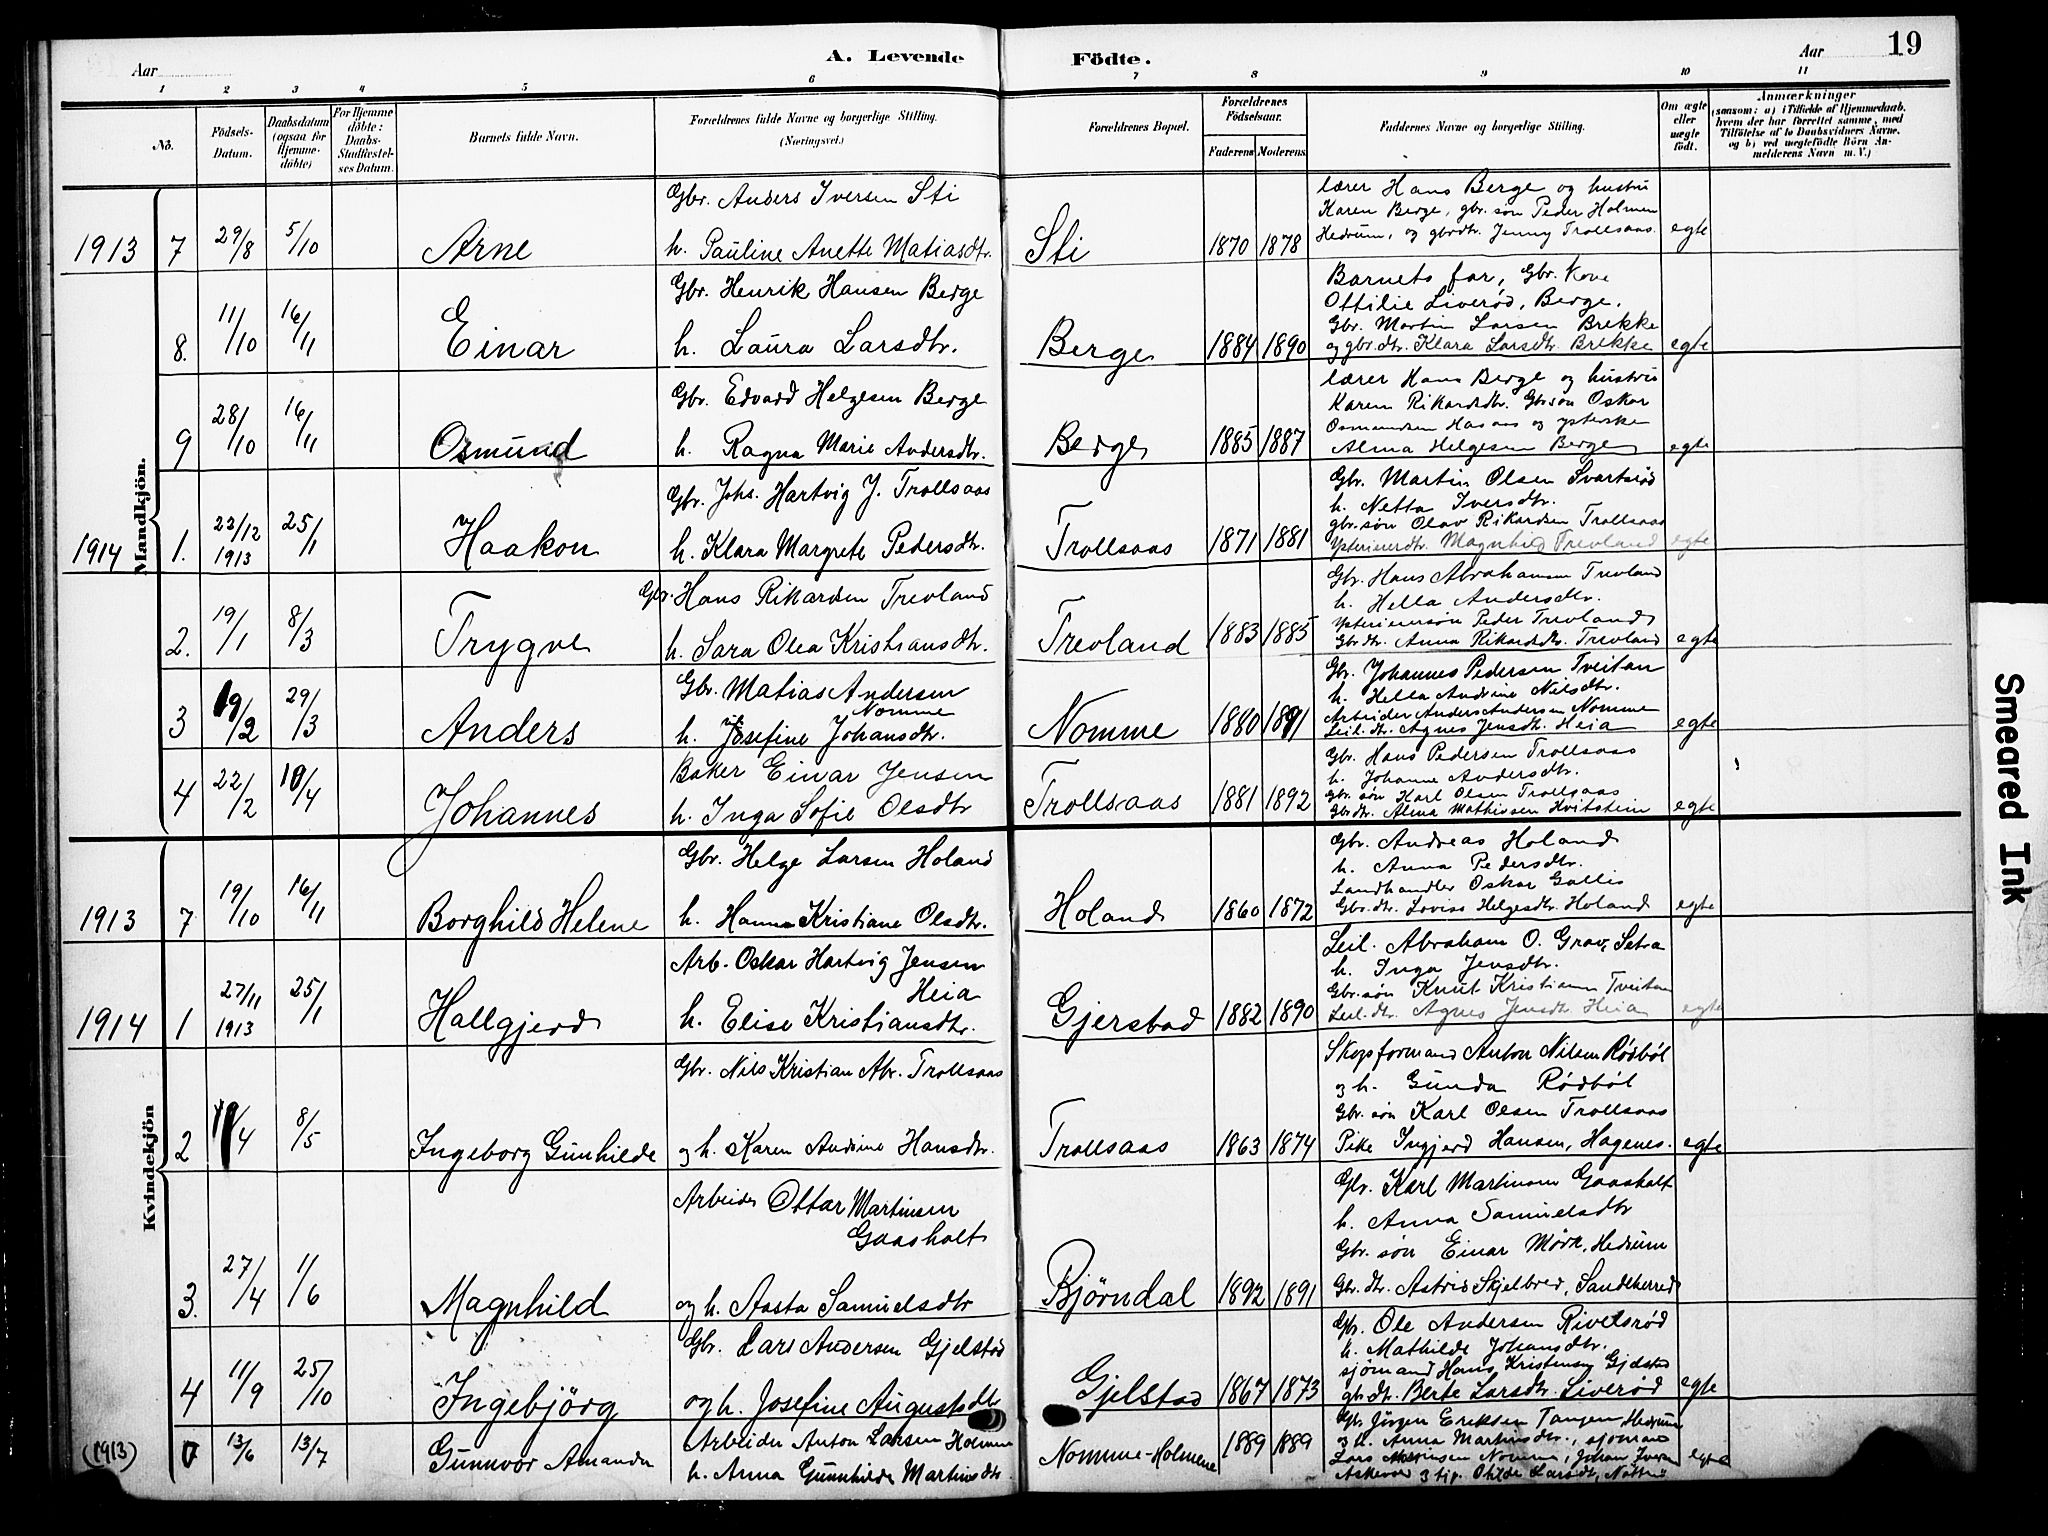 19
A. Levende Födte.
Aar
Aar
1 2 3 4 5 6 7 8 9 10 11
No.
Födsels-Datum.
Daabsdatum (ogsaa for Hjemme-döbte)
For Hjemme döbte: Daabs-Stadfæstelses Datum.
Barnets fulde Navn.
Forældrenes fulde Navne og borgerlige Stilling.
(Næringsvei.)
Forældrenes Bopæl.
Forældrenes Födselsaar.
Faderens Moderens
Faddernes Navne og borgerlige Stilling.
Om ægte eller uægte födt.
Anmærkninger
(saasom: a) i Tilfælde af Hjemmedaab, hvem der har forrettet samme, med Tilföielse af to Daabsvidners Navne, og b) ved uægtefödte Börn Anmelderens Navn m. V.)
Mandkjön.
1913 7 29/8 5/10 Arne
Gbr. Anders Iversen Sti
h. Pauline Anette Matiasdtr.
Sti 1870 1878
lærer Hans Berge og hustru
Karen Berge, gbr. søn Peder Holmen
Hedrum, og gbrdtr. Jenny Trollsaas.
egte
8. 11/10 16/11 Einar
Gbr. Henrik Hansen Berge
h. Laura Larsdtr.
Berge 1884 1890
Barnets far, Gbr. Kone
Ottilie Liverød, Berge.
Gbr. Martin Larsen Brekke
og gbr. dtr. Klara Larsdtr. Brekke
egte
9 28/10 16/11 Osmund
Gbr. Edvard Helgesen Berge
h. Ragna Marie Andersdtr.
Berge 1885 1887
lærer Hans Berge og hustru
Karen Rikardsdtr. Gbr søn Oskar
Osmundsen Hasaas og ypterske
Alma Helgesen Berge
egte
1914 1. 23/12 1913 25/1 Haakon
Gbr. Johs. Hartvig J. Trollsaas
h. Klara Margrete Pedersdtr.
Trollsaas 1871 1881
Gbr. Martin Olsen Svartsrød
h. Netta Iversdtr.
gbr. søn Olav Rikardsen Trollsaas
Magnhild Trevland
egte
2. 19/1 8/3 Trygve
Gbr. Hans Rikardsen Trevland
h. Sara Olea Kristiansdtr.
Trevland 1883 1885
Gbr. Hans Abrahamsen Trevland
h. Hella Andersdtr.
Peder Trevland
Gbr dtr. Anna Rikardsdtr. Trevland
egte
3 19/2 29/3 Anders
Gbr. Matias Andersen
Nomme
h. Josefine Johansdtr.
Nomme 1880 1891
Gbr. Johannes Pedersen Tveitan
h. Hella Andrine Nilsdtr.
Arbeider Anders Andersen Nomme
Leil. dtr. Agnes Jensdtr. Heia
egte
4 22/2 10/4 Johannes
Baker Einar Jensen
h. Inga Sofie Olsdtr
Trollsaas 1881 1892
Gbr. Hans Pedersen Trollsaas
h. Johanne Andersdtr.
Gbr. søn Karl Olsen Trollsaas
Gbr dtr. Alma Mathissen Kvitstein
egte
Kvindekjön
1913 7 19/10 16/11 Borghild Helene
Gbr. Helge Larsen Holand
h. Hanna Kristiane Olsdtr.
Holand 1860 1872
Gbr. Andreas Holand
h. Anna Pedersdtr.
Landhandler Oskar Gallis
Gbr. dtr. Lovise Helgesdtr. Holand
egte
1914 1 27/11 1913 25/1 Hallgjerd
Arb. Oskar Hartvig Jensen
Heia
h. Elise Kristiansdtr.
Gjerstad 1882 1890
Leil. Abraham O. Grav, Setra
h. Inga Jensdtr.
Gbr. søn Knut Kristiansen Tveitan
Leil. dtr. Agnes Jensdtr. Heia
egte
2 19/4 8/5 Ingeborg Gunhilde
Gbr. Nils Kristian Abr. Trollsaas
og h. Karen Andrine Hansdtr.
Trollsaas 1863 1874
Skogsformand Anton Nilsen Rødbøl
og h. Gunda Rødbøl
Gbr. søn Karl Olsen Trollsaas
Pike Ingjerd Hansen, Hagenes.
egte
3. 27/4 1/6 Magnhild
Arbeider Ottar Martinsen
Gaasholt
og h. Aasta Samuelsdtr
Bjørndal 1892 1891
Gbr. Karl Martinsen Gaasholt
h. Anna Samuelsdtr
Gbr. søn Einar Mørk, Hedrum
Gbr. dtr. Astrid Skjelbred, Sandeherred
4 11/9 25/10 Ingebjörg
Gbr. Lars Andersen Gjelstad
og h. Josefine Augustsdtr
Gjelstad 1867 1873
Gbr. Ole Andersen Rivelsrød
h. Mathilde Johansdtr.
sjömand Hans Kristensen Gjelstad
gbr. dtr. Berte Larsdtr. Liverød
egte
(1913) 13/6 13/7 Gunnvor Amanda
Arbeider Anton Larsen Holmene
h. Anna Gunnhilde Martinsdtr.
Nomme-Holmene 1889 1889
Gbr Jörgen Eriksen Tangen Hedrum
og h. Anna Martinsdtr., sjömand
Lars Nomme, Johan Iversen
Askevold og tjp. Otilde Larsdtr.
egte
Smeared Ink